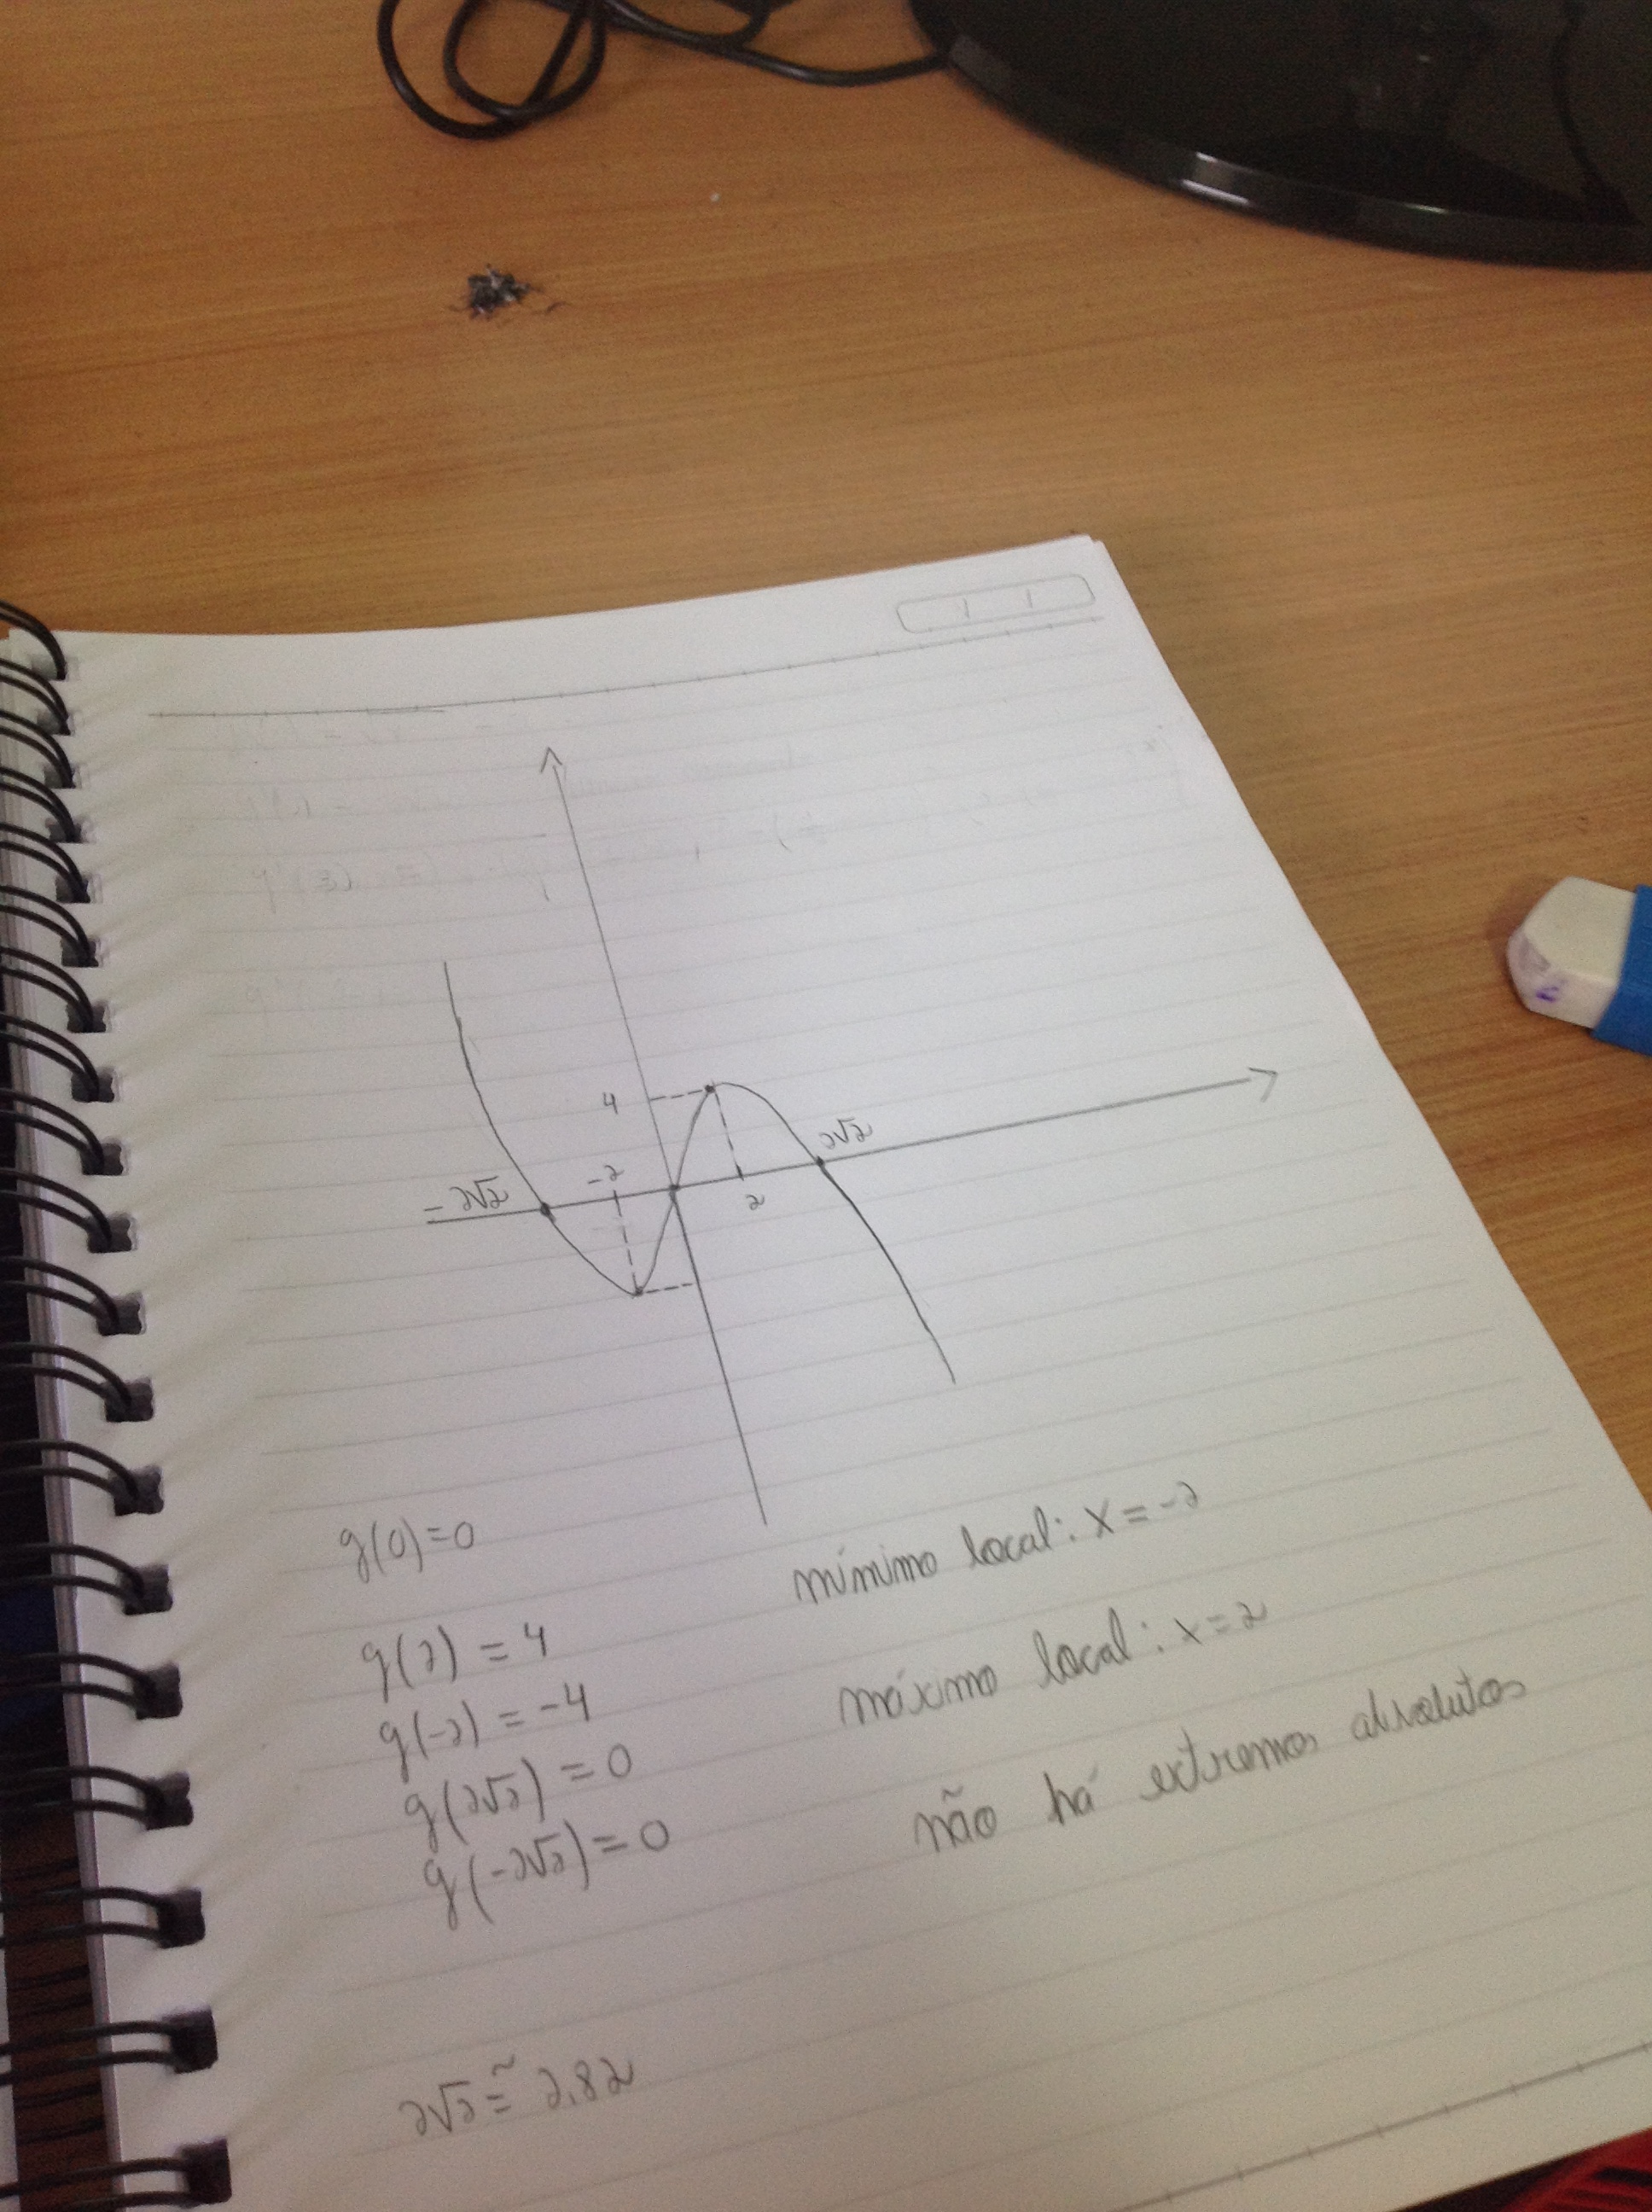 4
2√2
-2
-2√2
2
g(0)=0
mínimo local: x = -2
g(2) = 4
máximo local: x = 2
g(-2) = -4
não há extremos absolutos
g(2√2) = 0
g(-2√2) = 0
2√2 ≅ 2.82